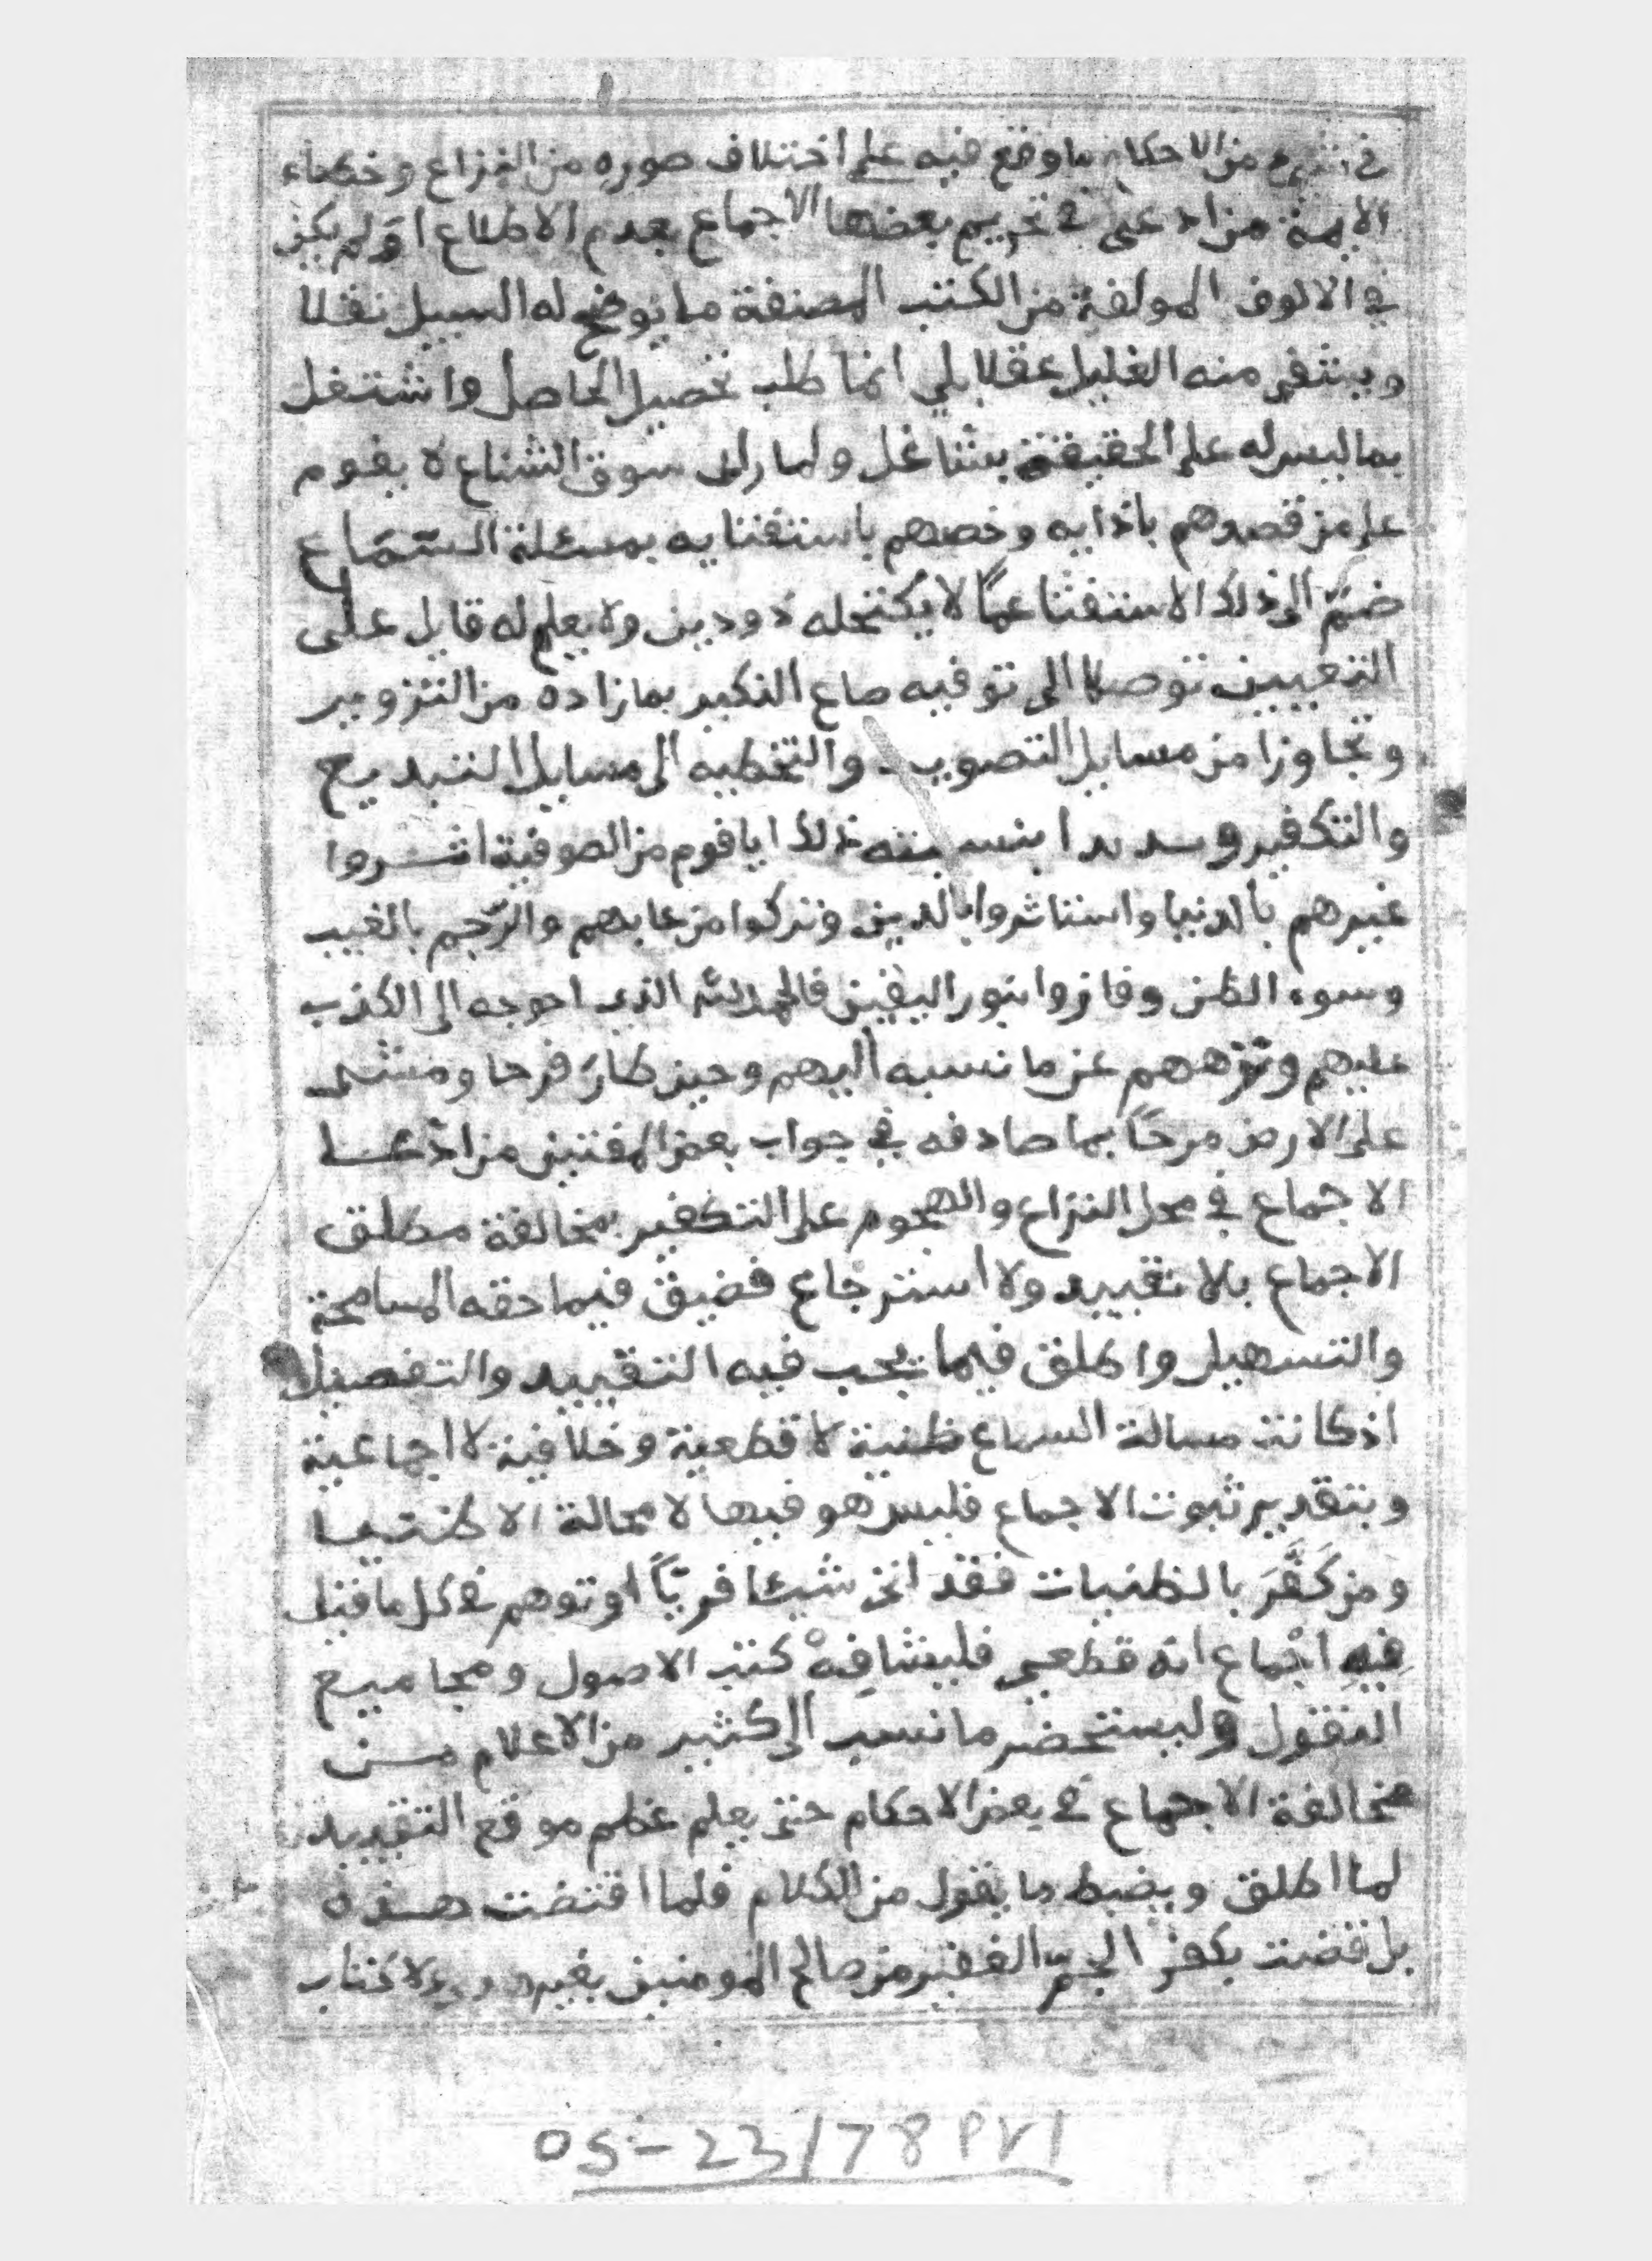 في شيء من الاحكام ما وقع فيه على اختلاف صوره من النزاع وخطاء
الايمة من ادعى في تحريم بعضها الاجماع بعدم الاطلاع او لم يكن
في الالوف المولفة من الكتب المصنفة ما يوضح له السبيل نقلا
ويشفي منه الغليل عقلا بلي انما طلب تحصيل الحاصل واشتغل
بما ليس له على الحقيقة بشاغل ولما راى سوق الشناعة لا يقوم
على من قصدهم باذايه وخصهم باستفتايه بمسئلة السماع
ضم الى ذلك الاستفتا عما لا ينتحله ذو دين ولا يعلم له قايل على
التعيين توصلا الى توفيه صاع النكير بما زاده من التزوير
وتجاوزا من مسايل التصويب والتخطيه الى مسايل التبديع
والتكفير بنسبته ذلك ايا قوم من الصوفية اثروا
غيرهم بالدنيا واستاثروا بالدين وتركوا من عابهم والرجم بالغيب
وسوء الظن وفازوا بنور اليقين فالحمد لله الذي احوجه الى الكذب
عليهم ونزههم عن ما نسبه اليهم وحين طار فرحا ومشى
على الارض مرحًا بما صادفه في جواب بعض المفتين من ادعا
الاجماع في محل النزاع والهجوم على التكفير بمخالفة مطلق
الاجماع بلا تقييد ولا استرجاع فضيق فيما حقه المسامحة
والتسهيل واطلق فيما يجب فيه التقييد والتفصيل
اذ كانت مسالة السماع ظنية لا قطعية وخلافية لا اجماعية
وبتقدير ثبوت الاجماع فليس هو فيها لا محالة الا ظنيا
ومن كَفَّرَ بالظنيات فقد اتى شيئا فريًا او توهم في كل ما قيل
فيه اجماع انه قطعي فليشافه كتب الاصول ومجاميع
النقول وليستحضر ما نسب الى كثير من الاعلام من
مخالفة الاجماع في بعض الاحكام حتى يعلم عظم موقع التقييد
لما اطلق ويضبط ما يقول من الكلام فلما اقتضت هذه
بل قضت بكفر الجم الغفير من صالح المومنين بغير ولا كتاب
OS-23/78 P71